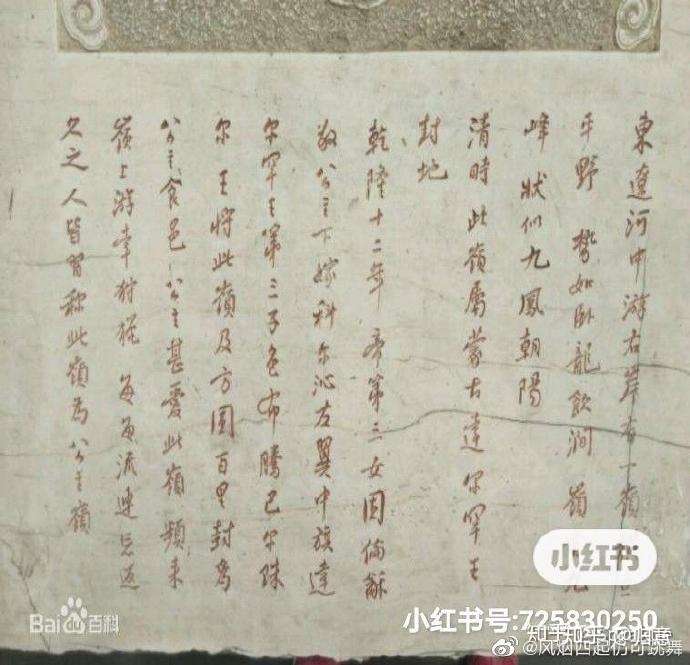 東遼河中游右岸有一嶺
平野 勢如卧龍飲澗 嶺
峰 狀似九鳳朝陽
清時此嶺屬蒙古達尔罕王
封地
乾隆十二年 帝第三女固倫龢
敬公主下嫁科尔沁左翼中旗達
尔罕王第三子色布騰巴尔珠
尔 王將此嶺及方圓百里封為
公主食邑 公主甚愛此嶺頻来
嶺上游幸狩獵 每每流連忘返
久之人皆習称此嶺為公主嶺
小红书
小红书号:725830250
知乎
@风烟西起仍可跳舞
Bai百科